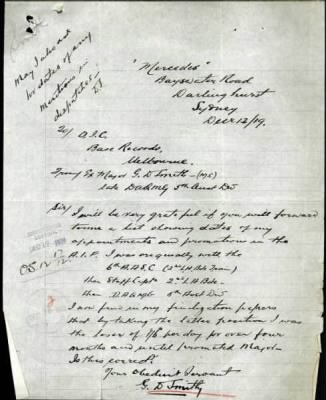 May I also ask
for dates of any
mentions in
despatches.
"Mercedes"
Bayswater Road
Darlinghurst
Sydney
Decr 12/19.
To/ O.I.C.
Base Records,
Melbourne.
From/ Ex Major G. D. Smith - (MC)
late DAQMG 5th Aust Div
Sir/
I will be very grateful if you will forward
to me a list showing dates of my
appointments and promotion in the
A.I.F. I was originally with the
6th A.A.S.C. (2nd L.H. Bde Train)
then Staff Capt 2nd L.H. Bde -
then DAQMG 5th Aust Div
I now find in my finalization papers
that by taking the latter position I was
the loser of 1/6 per day for over four
months and until promoted Major
Is this correct?
Your obedient servant
G. D. Smith